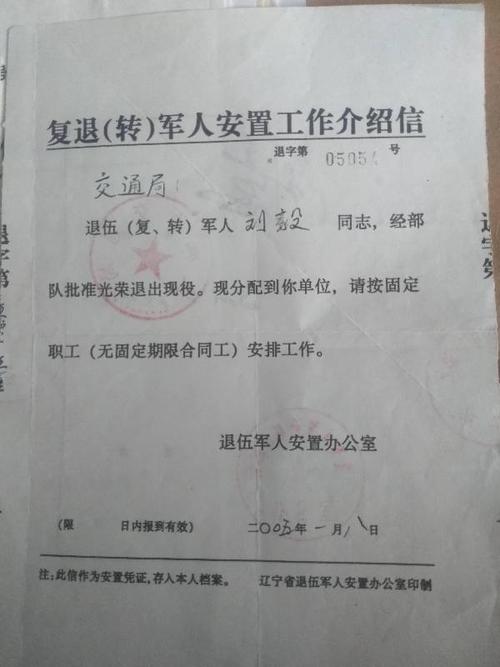 复退(转)军人安置工作介绍信
退字第 05051 号
交通局:
退伍(复、转)军人 刘毅 同志,经部
队批准光荣退出现役。现分配到你单位,请按固定
职工(无固定期限合同工)安排工作。
退伍军人安置办公室
(限 日内报到有效) 二〇〇五年一月八日
注:此信作为安置凭证,存入本人档案。 辽宁省退伍军人安置办公室印制
退字第